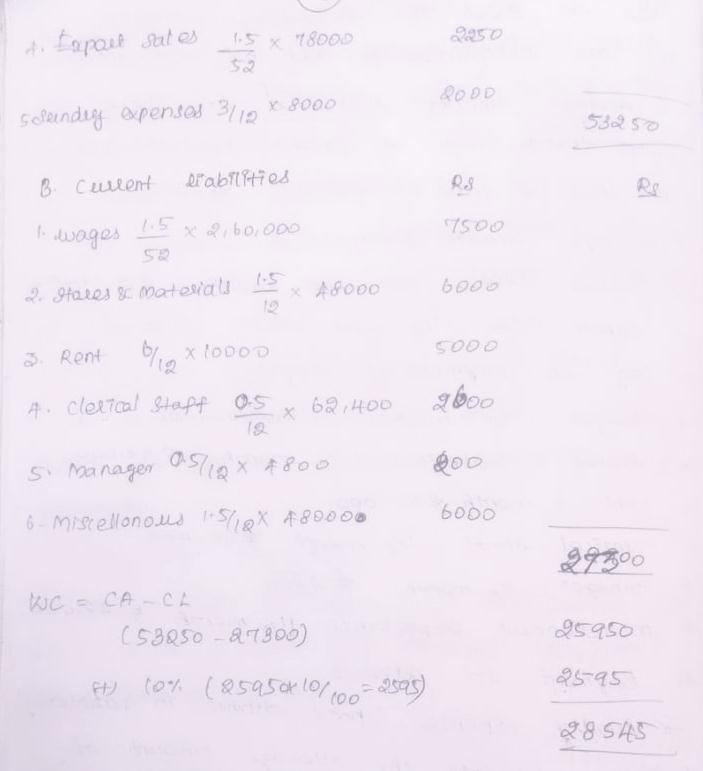 4. Export sales 1.5/52 × 78000 2250
5. Sundry expenses 3/12 × 8000 2000
53250
B. Current liabilities Rs Rs
1. wages 1.5/52 × 2,60,000 7500
2. Stores & materials 1.5/12 × 48000 6000
3. Rent 6/12 × 10000 5000
4. Clerical staff 0.5/12 × 62,400 2600
5. Manager 0.5/12 × 4800 200
6. Miscellonous 1.5/12 × 48000 6000
27300
WC = CA - CL
(53250 - 27300) 25950
(+) 10% (25950 × 10/100 = 2595) 2595
28545